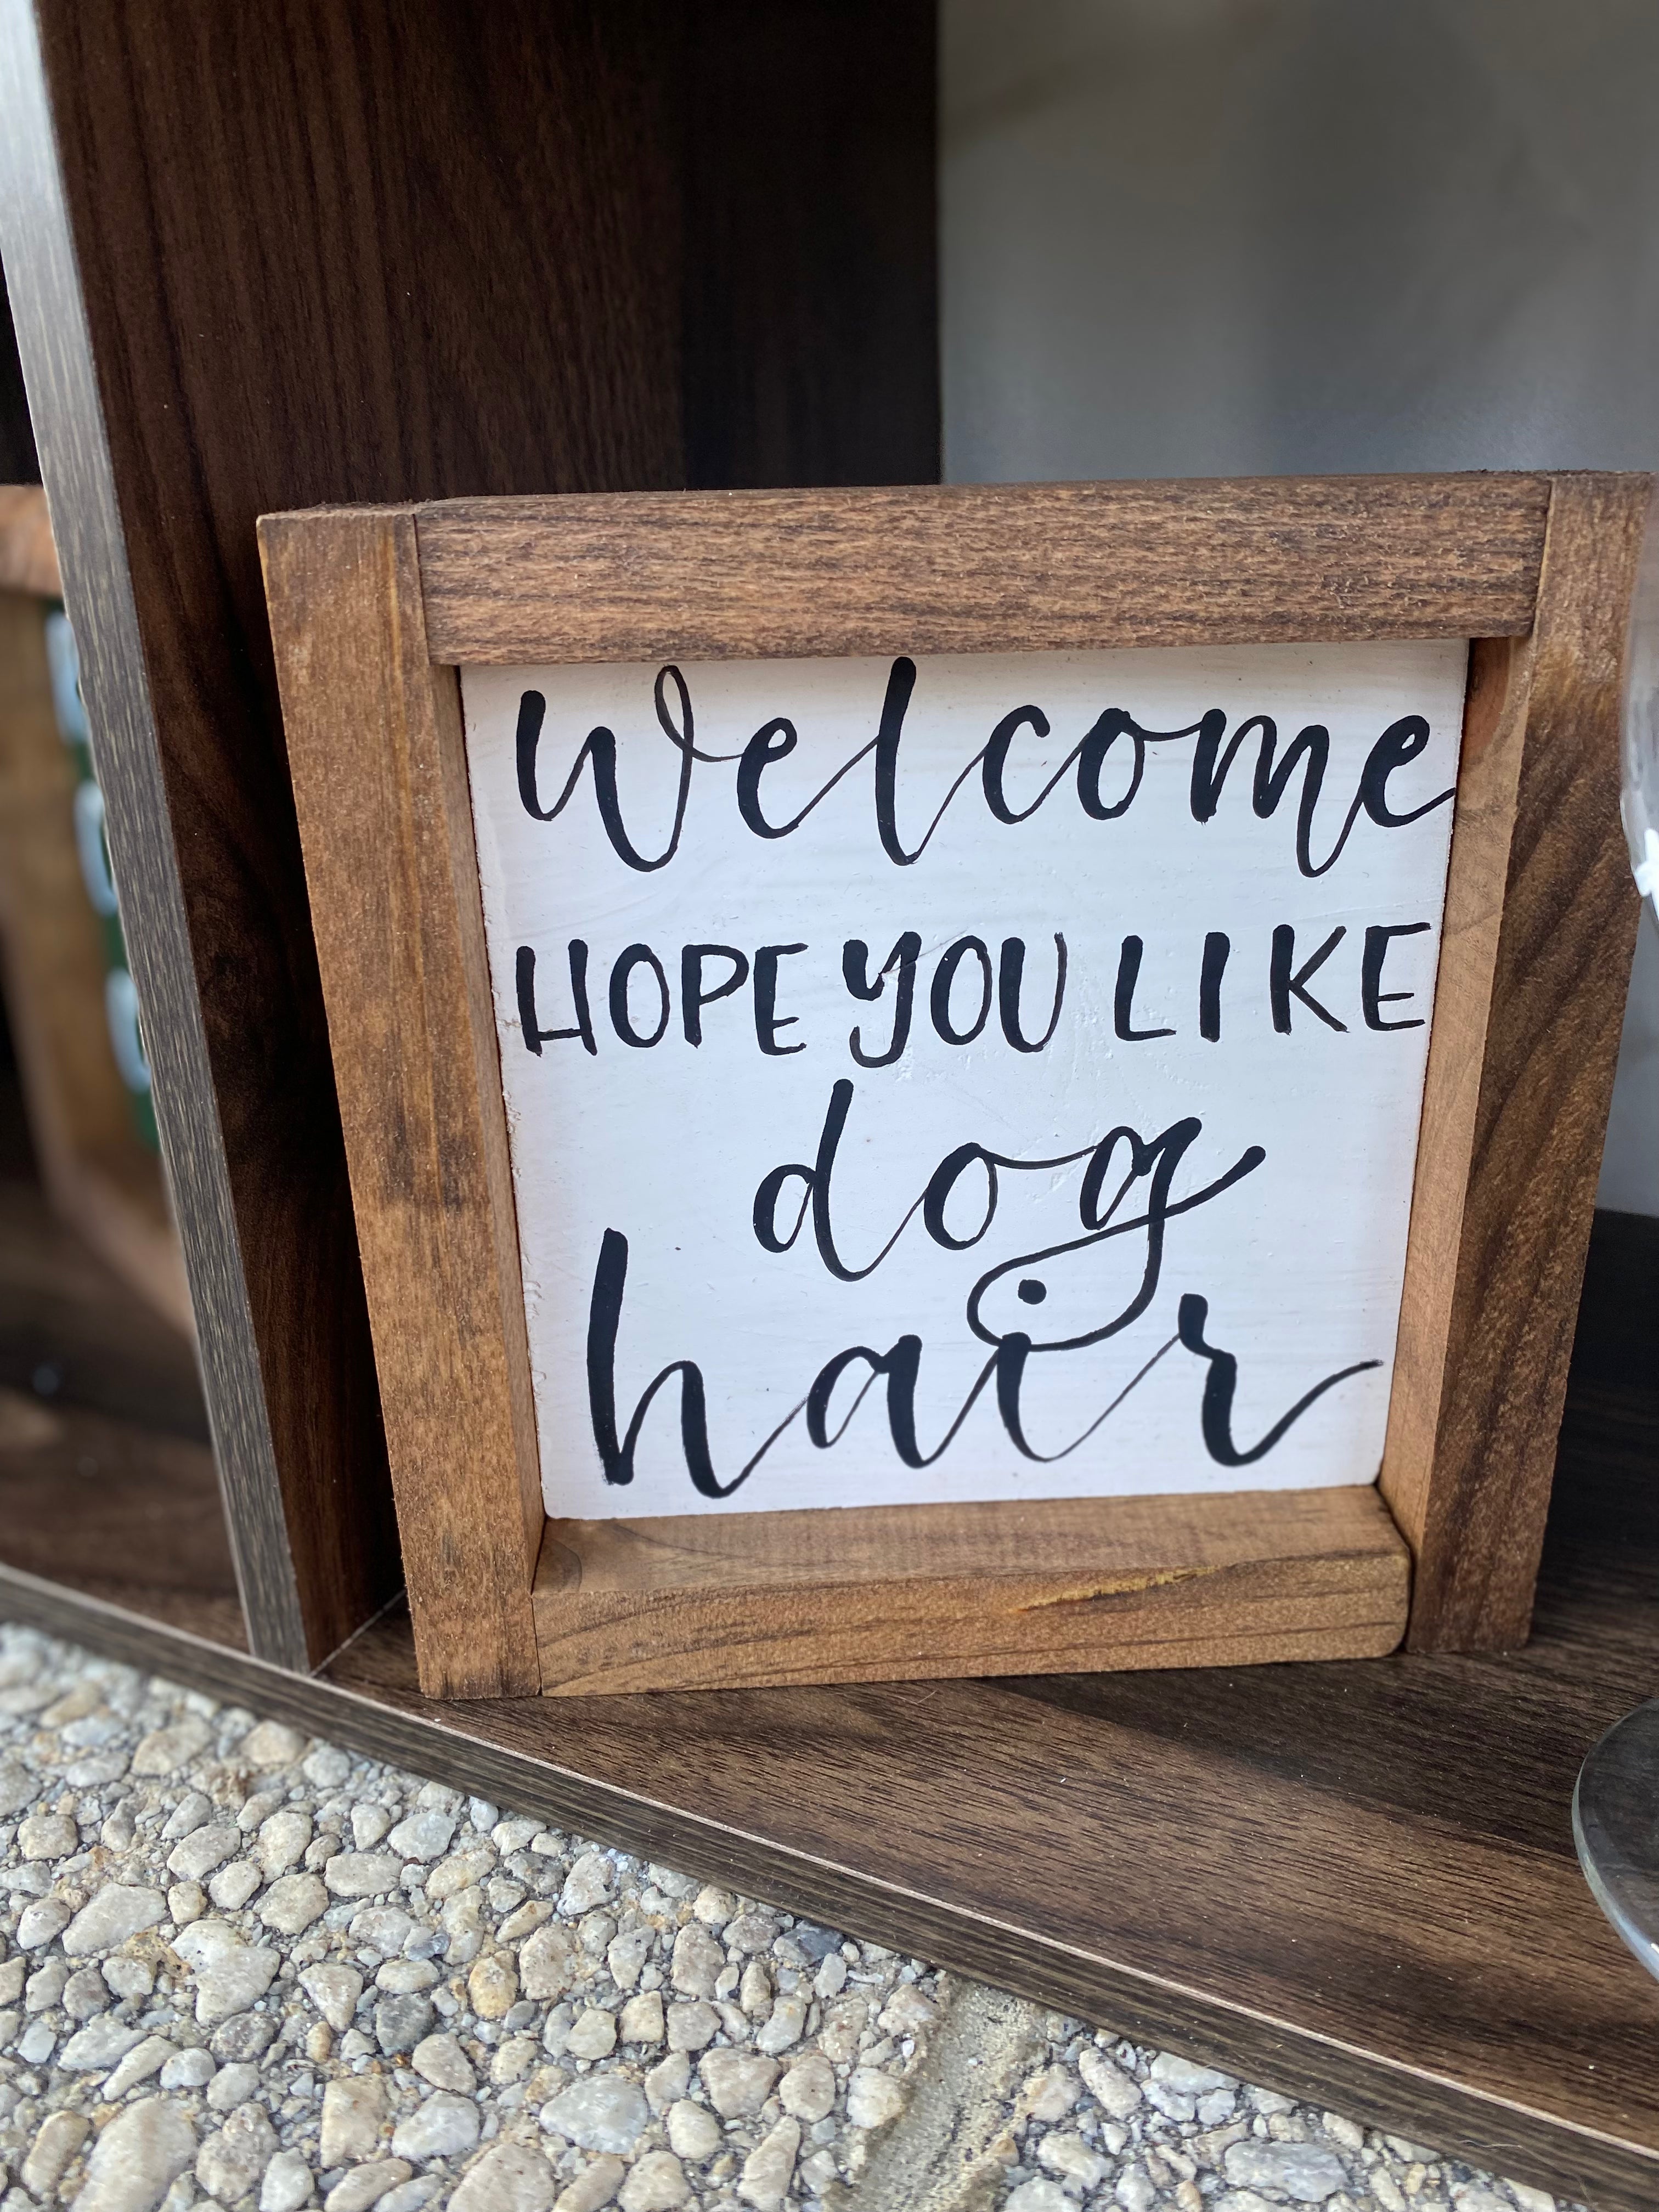 Welcome
HOPE YOU LIKE
dog
hair